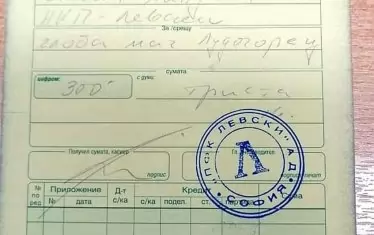 НКП-Левски
За срещу
глоба мач Лудогорец
сумата
цифром: 300- с думи: триста
Получил сумата, касиер
подпис
подпис
"ПФК ЛЕВСКИ" АД
Л
СОФИЯ
№ по ред Приложение Д-т с/ка Кредит
№ дата с/ка подел. ст. сума